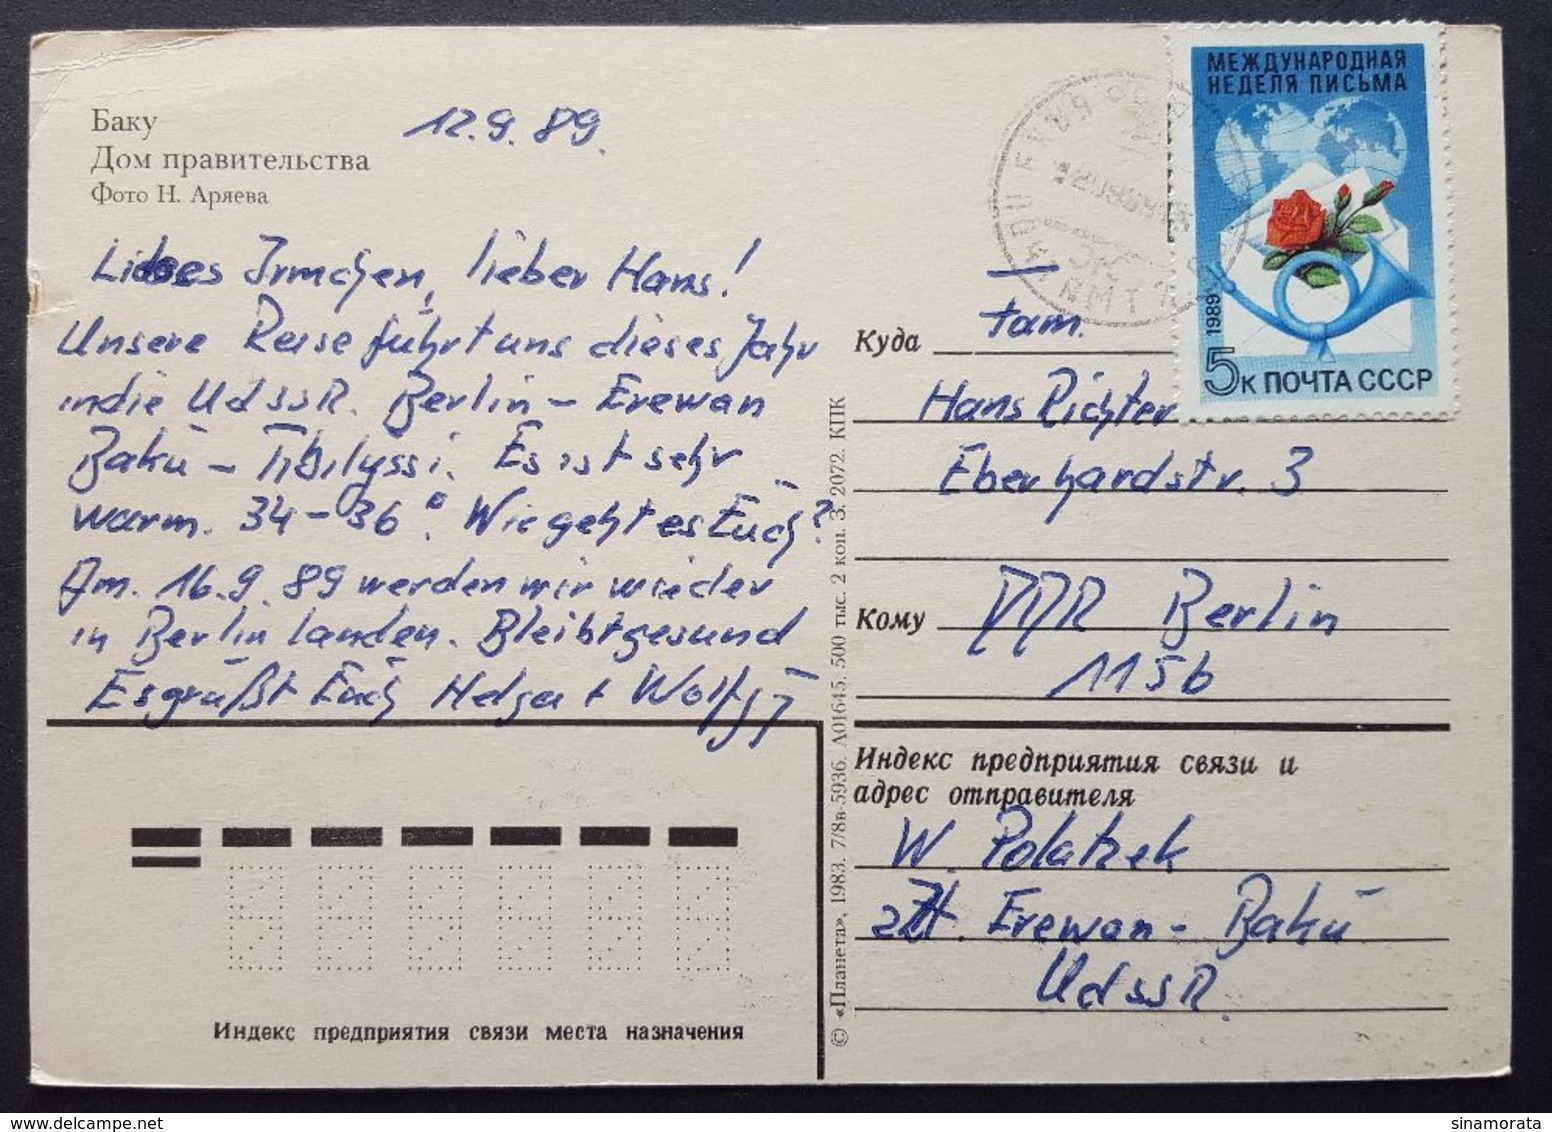 Баку
Дом правительства
Фото Н. Аряева
12.9.89.
Liebes Irmchen, lieber Hans!
Unsere Reise führt uns dieses Jahr
in die UdSSR. Berlin – Erewan
Baku – Tbilyssi. Es ist sehr
warm. 34–36°. Wie geht es Euch?
Am. 16.9.89 werden wir wieder
in Berlin landen. Bleibt gesund
Es grüßt Euch Helga + Wolfg
МЕЖДУНАРОДНАЯ
НЕДЕЛЯ ПИСЬМА
1989
5к ПОЧТА СССР
Куда
Fam.
Hans Richter
Eberhardstr. 3
Кому
DDR Berlin
1156
Индекс предприятия связи и
адрес отправителя
W. Polatzek
zZt. Erewan – Baku
UdSSR.
Индекс предприятия связи места назначения
© «Планета», 1983. 7/8в-5936. А01645. 500 тыс. 2 коп. З. 2072. КПК
sinamorata